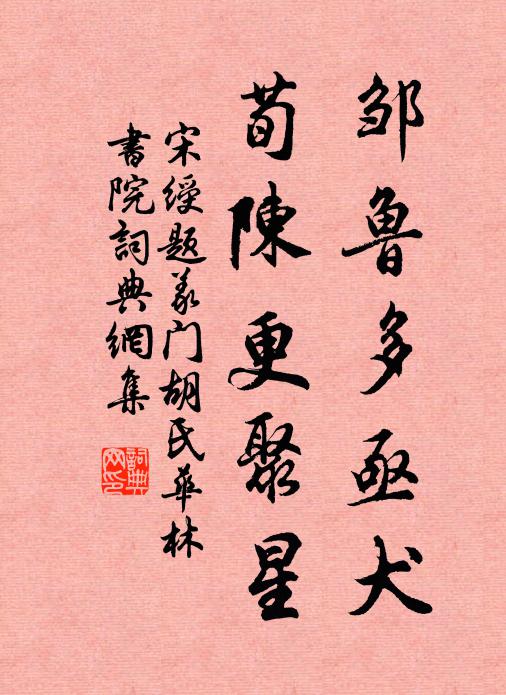 邹鲁多亟犬
荀陳更聚星
宋綬题義门胡氏華林
書院詞典網集
詞典网印